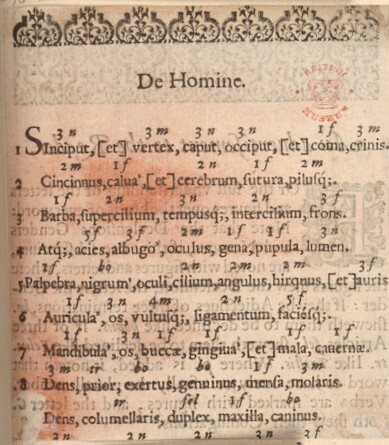 De Homine.
3 n 3 m 3 n 3 n 1 f 3 m
1 SInciput, [et] vertex, caput, occiput, [et] coma, crinis.
2 m 1 f 2 n 1 f 2 m
2 Cincinnus, calua', [et] cerebrum, sutura, pilusq;.
1 f 2 n 3 n 2 n 3 f
3 Barba, supercilium, tempusq;, intercilium, frons.
5 f 3 f 2 m 1 f 1 f 3 n
4 Atq;, acies, albugo', oculus, gena, pupula, lumen.
1 f bo 2 n 2 m 2 m 3 f
5 Palpebra, nigrum', oculi, cilium, angulus, hirquus, [et] auris
1 f 3 n 4 m 2 n 5 f
6 Auricula', os, vultusq;, ligamentum, faciésq;.
1 f 3 n 1 f 1 f 1 f
7 Mandibula', os, buccæ, gingiua', [et] mala, cauernæ.
3 m tr bo bo 1 f bo
8 Dens, prior, exertus, genuinus, mensa, molaris.
tr sol 1 f bo
Dens, columellaris, duplex, maxilla, caninus.
2 n 2 n 3 n 3 f